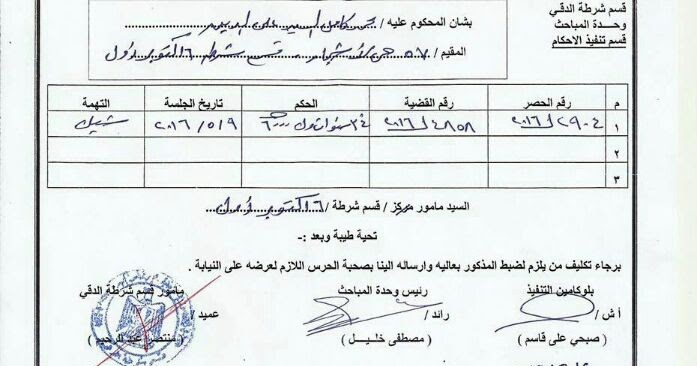 قسم شرطة الدقي
وحدة المباحث
قسم تنفيذ الاحكام
بشان المحكوم عليه / كامل السيد
المقيم / ٥٧ قسم شرطة ٦ اكتوبر اول
م رقم الحصر رقم القضية الحكم تاريخ الجلسة التهمة
١ ٢٩٠٤/٢٠١٦ ٤٨٥٨/٢٠١٦ ٣ سنوات ٢٠١٦/٥/٩ شيك
٢
٣
السيد مامور مركز / قسم شرطة / ٦ اكتوبر اول
تحية طيبة وبعد :-
برجاء تكليف من يلزم لضبط المذكور بعاليه وارساله الينا بصحبة الحرس اللازم لعرضه على النيابة .
بلوكامين التنفيذ رئيس وحدة المباحث مامور قسم شرطة الدقي
أ ش / رائد / عميد /
( صبحي على قاسم ) ( مصطفى خليـــل ) ( منتصر عبد الرحيم )